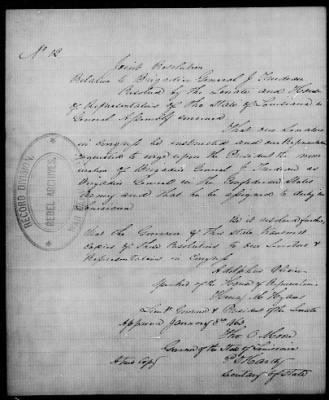 No 18
Joint Resolution
Relative to Brigadier General J. Trudeau
Resolved by the Senate and House
of Representatives of the State of Louisiana in
General Assembly convened
That our Senators
in Congress be instructed and our Representatives
requested to urge upon the President the nom
ination of Brigadier General J. Trudeau as
Brigadier General in the Confederate States
Army and that he be assigned to duty in
Louisiana
Be it resolved further
that the Governor of this State transmit
copies of these Resolutions to our Senators &
Representatives in Congress
Adolphus Olivier
Speaker of the House of Representatives
Henry M. Hyams
Lieut Governor & President of the Senate
Approved January 3rd 1863
Tho O. Moore
Governor of the State of Louisiana
A true Copy
Hardy
Secretary of State
RECORD DIVISION
REBEL ARCHIVES
WAR